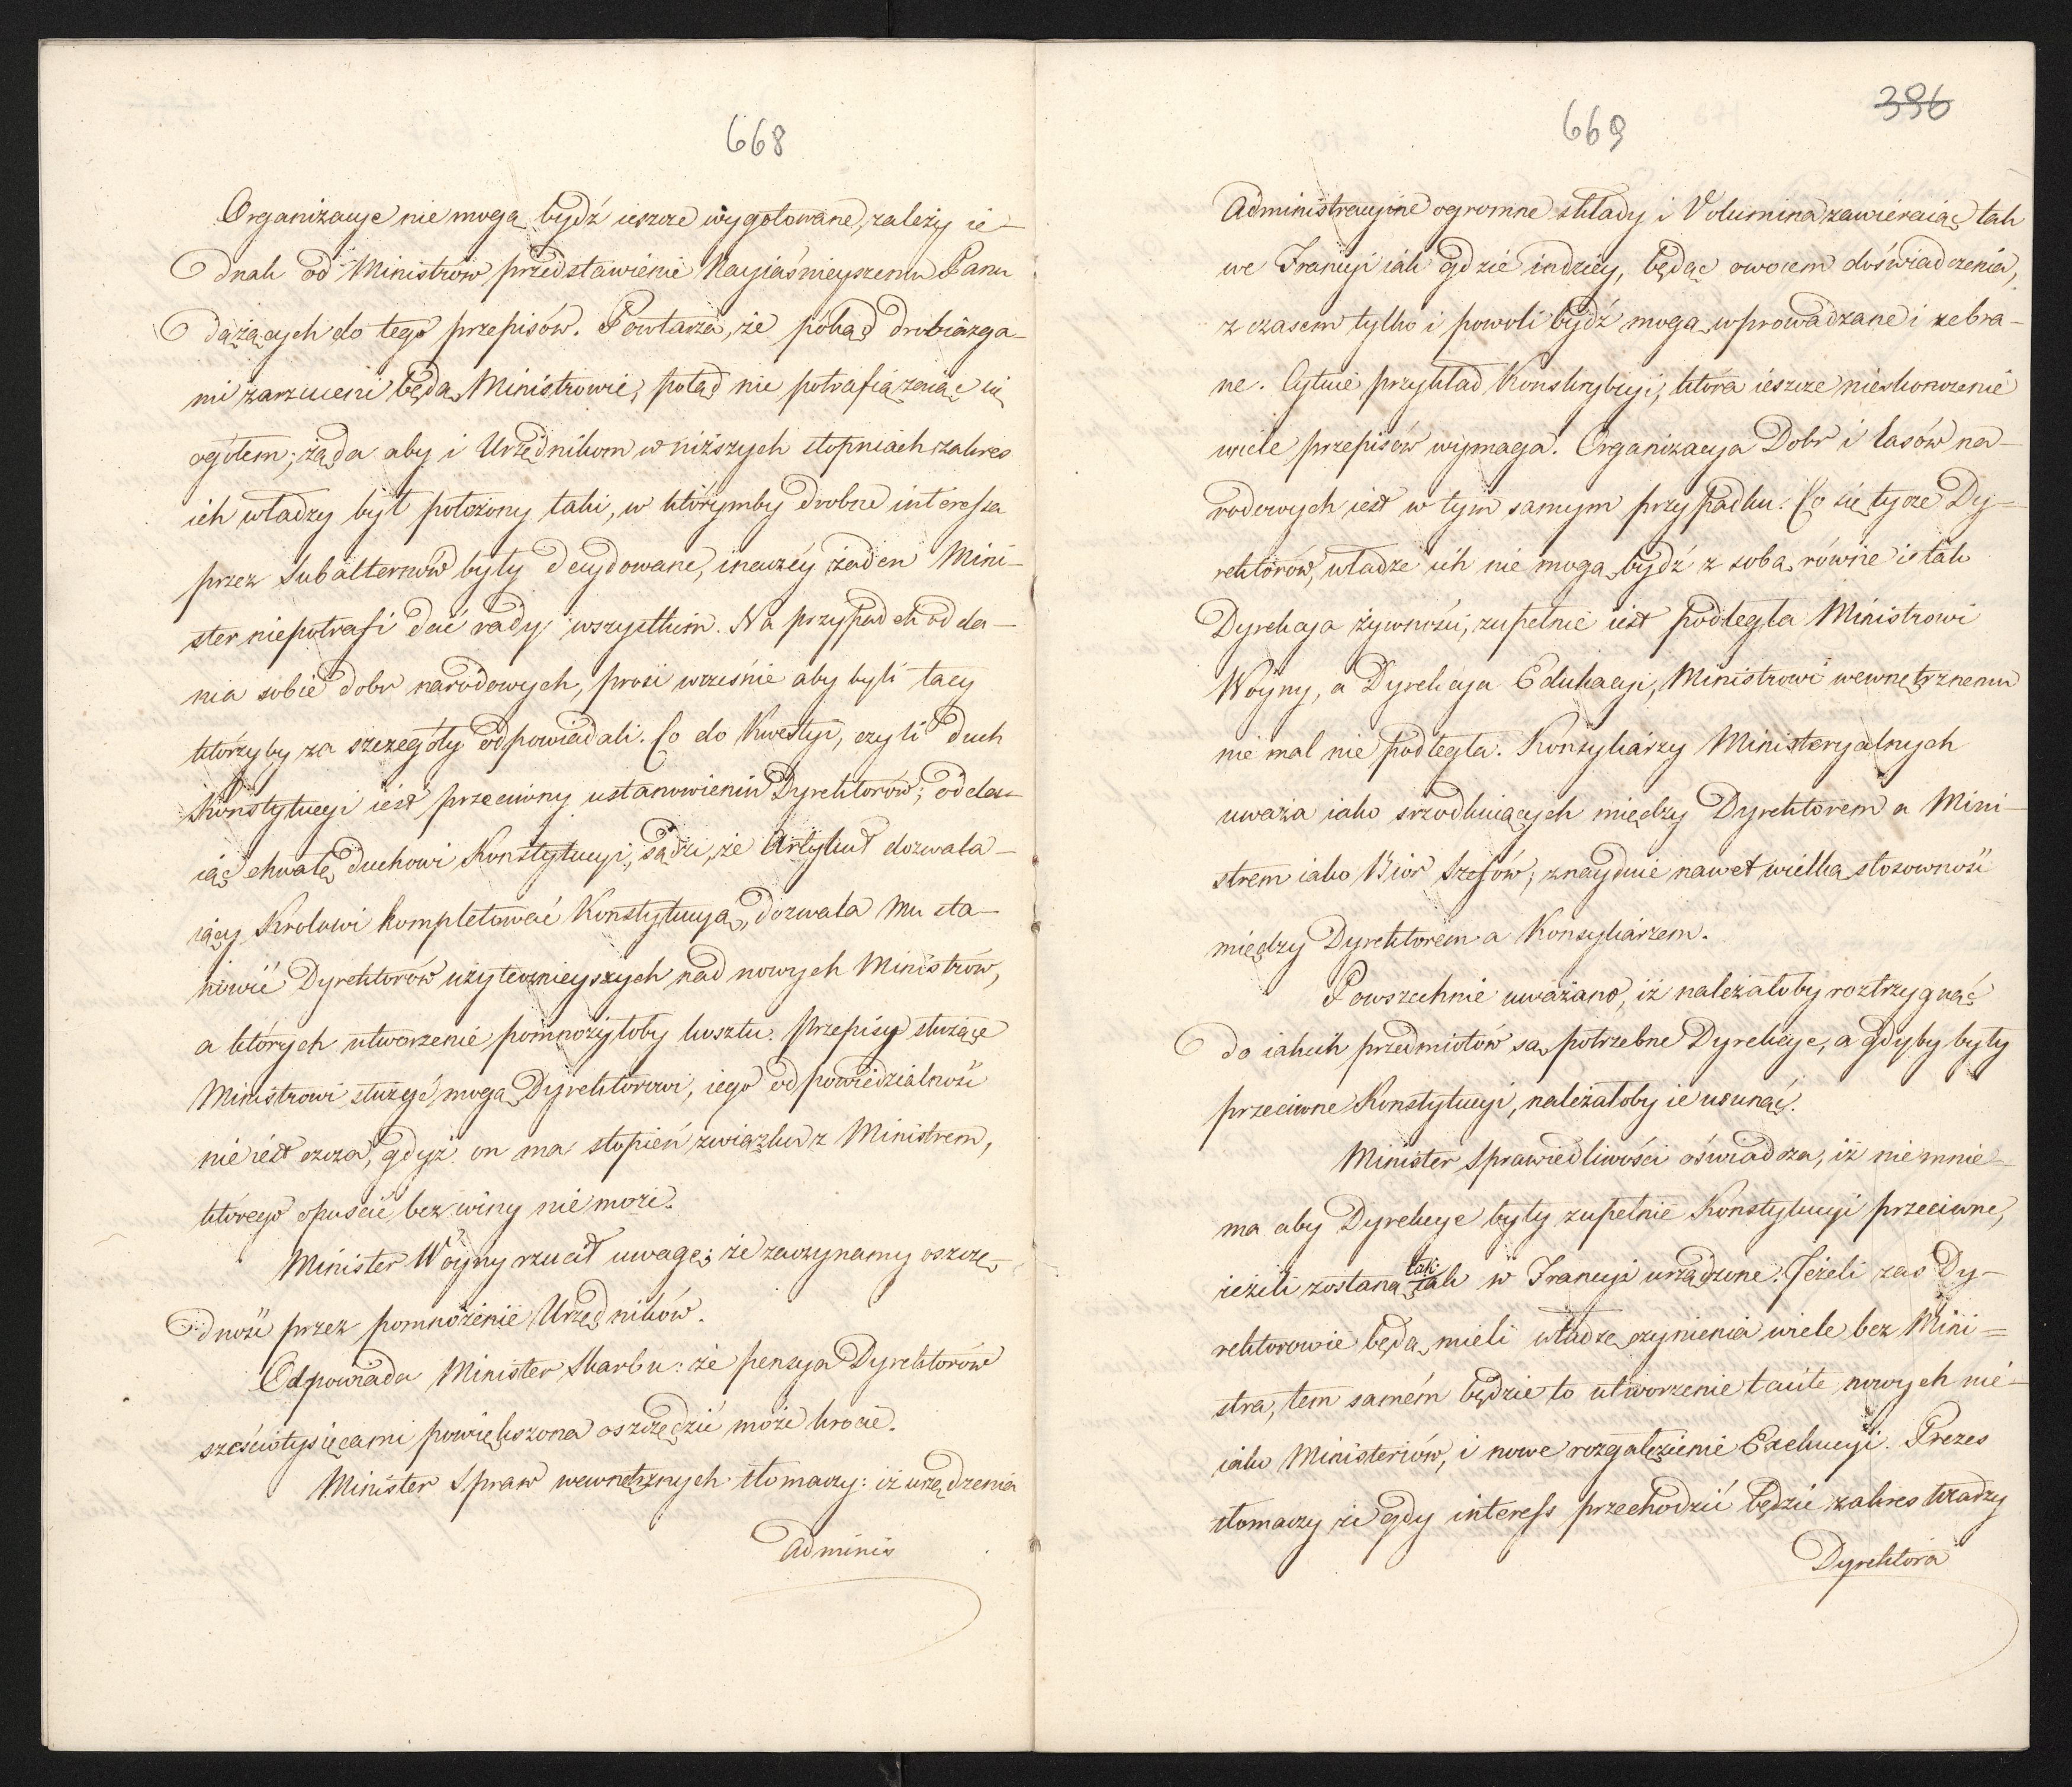 668
Organizacye nie mogą bydź ieszcze wygotowane, zależy ie-
dnak od Ministrów przedstawienie Nayiaśnieyszemu Panu
dążących do tego przepisów. Powtarza, że pokąd drobiazga-
mi zarzuceni będą Ministrowie, potąd nie potrafią zaiąć się
ogółem; żąda aby i Urzędnikom w niższych stopniach zakres
ich władzy był położony taki, w którymby drobne interessa
przez Subalternów były decydowane, inaczéy żaden Mini-
ster niepotrafi dać rady wszystkim. Na przypadek odda-
nia sobie dobr narodowych, prosi wcześnie aby byli tacy
którzyby za szczegóły odpowiadali. Co do Kwestyi, czyli duch
Konstytucyi iest przeciwny ustanowieniu Dyrektorów; odda-
iąc chwałę duchowi Konstytucyi, sądzi, że Artykuł dozwala-
iący Krolowi kompletować Konstytucyą, dozwala Mu sta-
nowić Dyrektorów użytecznieyszych nad nowych Ministrów,
a których utworzenie pomnożyłoby kosztu. Przepisy służące
Ministrowi służyć mogą Dyrektorowi, iego odpowiedzialność
nie iest czcza, gdyż on ma stopień związku z Ministrem,
którego opuścić bez winy nie może.
Minister Woyny rzucił uwagę; że zaczynamy oszczę-
dność przez pomnożenie Urzędników.
Odpowiada Minister Skarbu: że pensya Dyrektorów
sześciotysięcami powiększona oszczędzić może krocie.
Minister Spraw wewnętrznych tłomaczy: iż urządzenia
Adminis
669
396
Administracyine ogromne składy i Volumina zawieraiąc tak
we Francyi iak gdzie indziey, będąc owocem doświadczenia,
z czasem tylko i powoli bydź mogą wprowadzane i zebra-
ne. Cytuie przykład Konskrybcyi, która ieszcze nieskonczenie
wiele przepisów wymaga. Organizacya Dobr i lasów na-
rodowych iest w tym samym przypadku. Co się tycze Dy-
rektorów, władze ich nie mogą bydź z sobą równe i tak
Dyrekcya żywności, zupełnie iest podległa Ministrowi
Woyny, a Dyrekcya Edukacyi, Ministrowi wewnętrznemu
nie mal nie podległa. Konsyliarzy Ministeryalnych
uważa iako srzodkuiących między Dyrektorem a Mini-
strem iako Biór Szefów; znayduie nawet wielką stosowność
między Dyrektorem a Konsyliarzem.
Powszechnie uważano, iż należałoby roztrzygnąć
do iakich przedmiotów są potrzebne Dyrekcye, a gdyby były
przeciwne Konstytucyi, należałoby ie usunąć.
Minister Sprawiedliwości oświadcza, iż niemnie-
ma aby Dyrekcye były zupełnie Konstytucyi przeciwne,
ieżeli zostaną tak iak w Francyi urządzone. Jeżeli zas Dy-
rektorowie będą mieli władzę czynienia wiele bez Mini-
stra, tem samém będzie to utworzenie tacite nowych nié-
iako Ministeriów, i nowe rozgałęzienie Exekucyi. Prezes
tłomaczy że gdy interess przechodzić będzie zakres władzy
Dyrektora